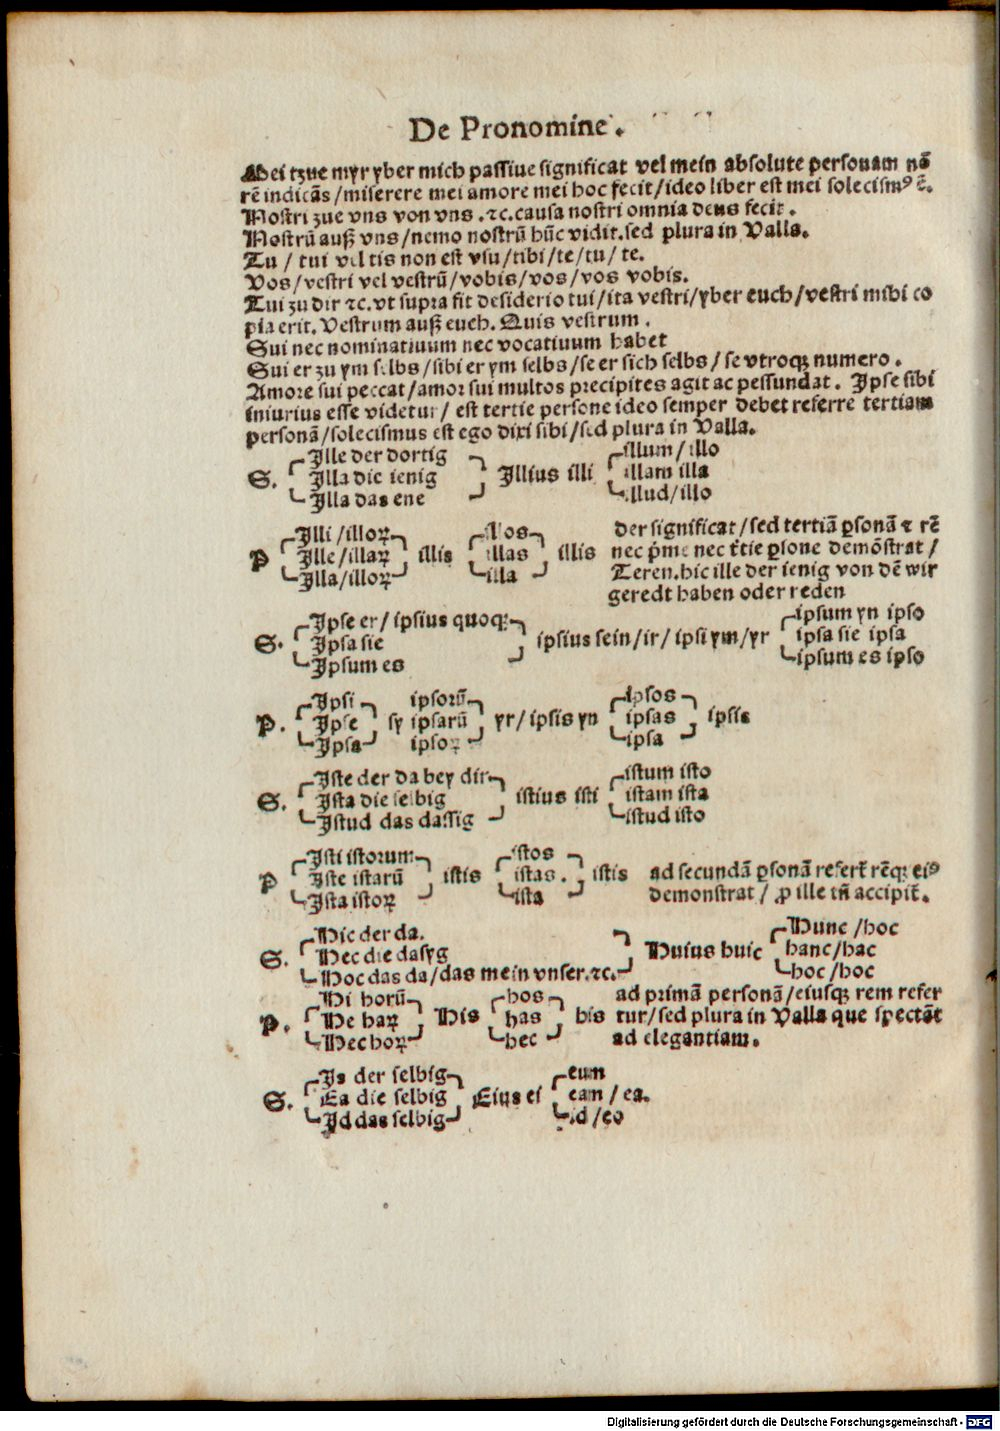 De Pronomine.
Mei tzue myr yber mich passiue significat vel mein absolute personam nõ
rẽ indicãs/miserere mei amore mei hoc fecit/ideo liber est mei solecismꝰ ẽ.
Nostri zue vns von vns .⁊c.causa nostri omnia deus fecit.
Nostrũ auß vns/nemo nostrũ hũc vidit.sed plura in Valla.
Tu / tui vel tis non est vsu/tibi/te/tu/ te.
Vos/vestri vel vestrũ/vobis/vos/vos vobis.
Tui zu dir ⁊c.vt supra fit desiderio tui/ita vestri/yber euch/vestri mihi co
pia erit. Vestrum auß euch. Quis vestrum .
Sui nec nominatiuum nec vocatiuum habet
Sui er zu ym selbs/sibi er ym selbs/se er sich selbs/ se vtroqꝫ numero.
Amore sui peccat/amor sui multos precipites agit ac pessundat. Ipse sibi
iniurius esse videtur/ est tertie persone ideo semper debet referre tertiam
personã/solecismus est ego dixi sibi/sed plura in Valla.
Ille der dortig illum/illo
S. Illa die ienig Illius illi illam illa
Illa das ene illud/illo
Illi /illoꝝ illos der significat/sed tertiã ꝑsonã ⁊ rẽ
P Ille/illaꝝ illis illas illis nec p̃me nec t̃tie ꝑsone demõstrat /
Illa/illoꝝ illa Teren.hic ille der ienig von dẽ wir
geredt haben oder reden
Ipse er/ ipsius quoqꝫ ipsum yn ipso
S. Ipsa sie ipsius sein/ir/ipsi ym/yr ipsa sie ipsa
Ipsum es ipsum es ipso
Ipsi ipsorũ ipsos
P. Ipse sy ipsarũ yr/ipsis yn ipsas ipsis
Ipsa ipsoꝝ ipsa
Iste der da bey dir istum isto
S. Ista die selbig istius isti istam ista
Istud das dassig istud isto
Isti istorum istos
P Iste istarũ istis istas. istis ad secundã ꝑsonã refert̃ rẽqꝫ eiꝰ
Ista istoꝝ ista demonstrat/ ꝓ ille tñ accipit̃.
Hic der da. Hunc /hoc
S. Hec die dasyg Huius huic hanc/hac
Hoc das da/das mein vnser.⁊c. hoc /hoc
Hi horũ hos ad primã personã/eiusqꝫ rem refer
P. He haꝝ His has his tur/sed plura in Valla que spectãt
Hec hoꝝ hec ad elegantiam.
Is der selbig eum
S. Ea die selbig Eius ei eam / ea.
Id das selbig id /eo
Digitalisierung gefördert durch die Deutsche Forschungsgemeinschaft - DFG